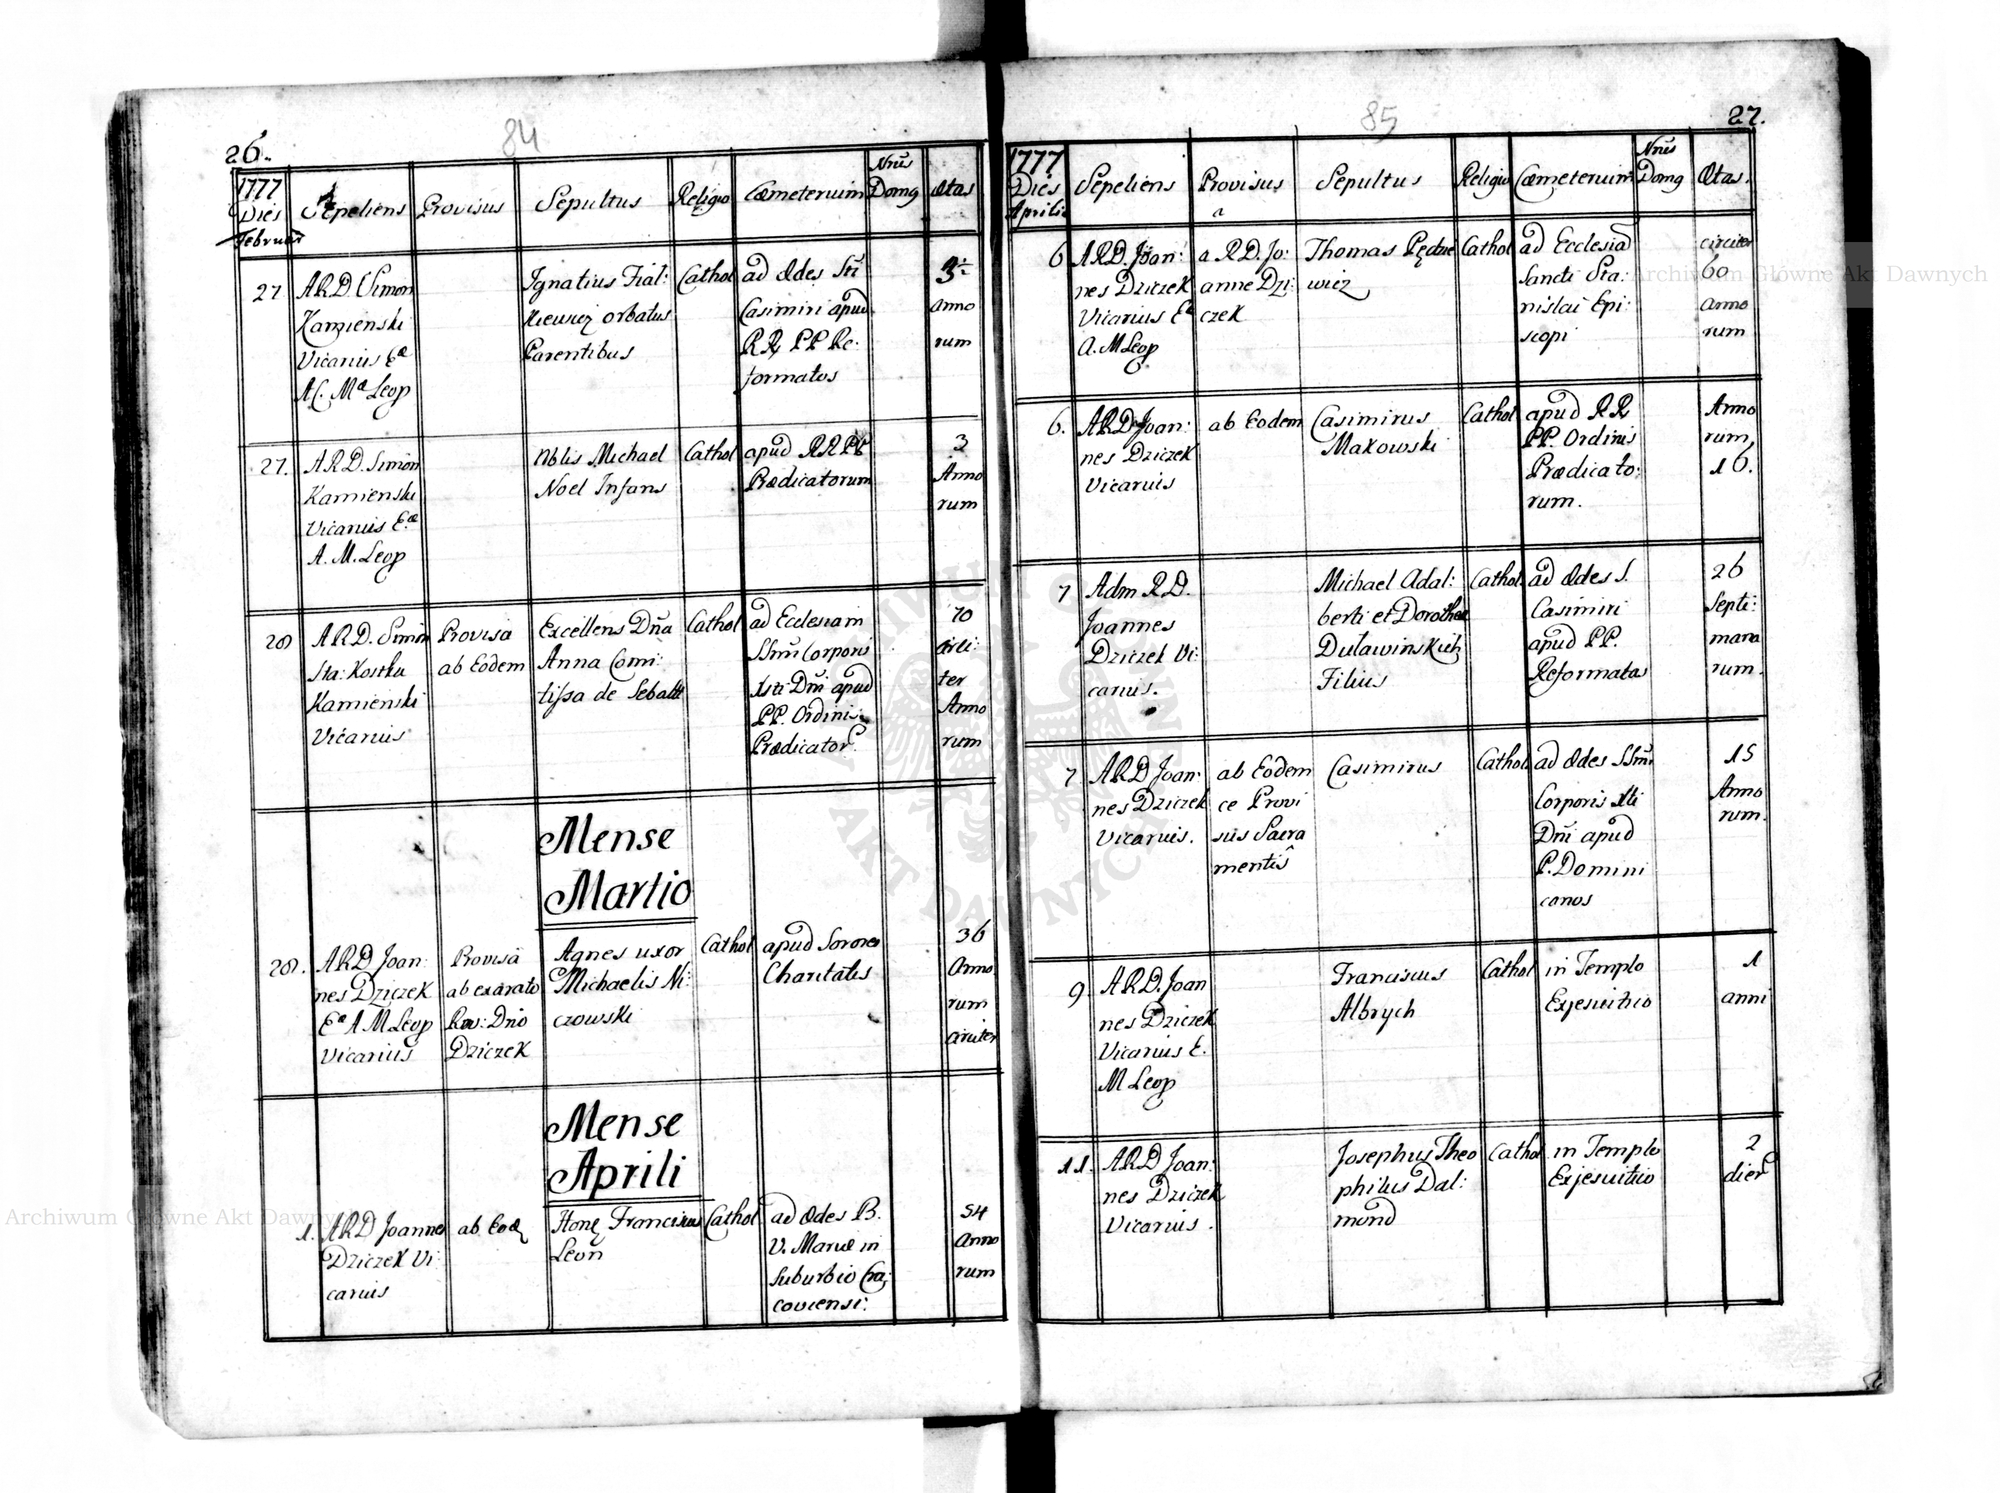 26.
84
1777
Dies
Februar
Sepeliens
Provisus
Sepultus
Religio
Cœmeterium
Nrus
Domq
Ætas
27
ARD. Simon
Kamienski
Vicarius Eæ
AC. Mæ Leop
Ignatius Fial:
kiewicz orbatus
Parentibus
Cathol
ad Ædes Sti
Casimiri apud
RR PP Re:
formatos
Anno
rum
27.
A.R.D. Simon
Kamienski
Vicarius E.æ
A. M. Leop
Nblis Michael
Noel Infans
Cathol
apud RR PP
Prædicatorum
3
Anno
rum
28
A R D. Simon
Sta: Kostka
Kamienski
Vicarius
Provisa
ab Eodem
Excellens Dña
Anna Comi:
tissa de
Cathol
ad Ecclesiam
SSmi Corporis
Xsti Dni apud
PP. Ordinis
Prædicator
70
circi:
ter
Anno
rum
Mense
Martio
28.
ARD Joan:
nes Dziczek
Eæ A M Leop
Vicarius
Provisa
ab exarato
Rev: Dño
Dziczek
Agnes uxor
Michaelis Ni:
czowski
Cathol
apud Sorores
Charitatis
36
Anno
rum
circiter
Mense
Aprili
1.
ARD Joannes
Dziczek Vi:
carius
ab Eod
Franciscus
Leon
Cathol
ad Ædes B.
V. Mariæ in
Suburbio Cra:
coviensi:
54
Anno
rum
85
27.
1777
Dies
Aprilis
Sepeliens
Provisus
a
Sepultus
Religio
Cœmeterium
Nrus
Domq
Ætas.
6
ARD. Joan:
nes Dziczek
Vicarius Eæ
A. M Leop
a R D. Jo:
anne Dzi:
czek
Thomas Pędze
wicz
Cathol
ad Ecclesiā
Sancti Sta:
nislai Epi:
scopi
circiter
60
Anno
rum
6.
ARD Joan:
nes Dziczek
Vicarius
ab Eodem
Casimirus
Makowski
Cathol
apud RR
PP. Ordinis
Prædicato:
rum.
Anno
rum
16.
7
Adm R D.
Joannes
Dziczek Vi:
carius.
Michael Adal:
berti et Dorotheæ
Dulawinskich
Filius
Cathol
ad Ædes S.
Casimiri
apud PP.
Reformatas
26
Septi:
mana
rum.
7
ARD Joan:
nes Dziczek
Vicarius.
ab Eodem
ce Provi
sus Sacra
mentis
Casimirus
Cathol
ad Ædes SSmi
Corporis Xti
Dñi apud
P. Domini
canos
15
Anno
rum.
9.
ARD. Joan
nes Dziczek
Vicarius E.
M Leop
Franciscus
Albrych
Cathol
in Templo
Exjesuitico
1
anni
11.
ARD Joan:
nes Dziczek
Vicarius.
Josephus Theo
philus Dal:
mond
Cathol
in Templo
Exjesuitico
2
dier
Archiwum Główne Akt Dawnych
Archiwum Główne Akt Dawnych